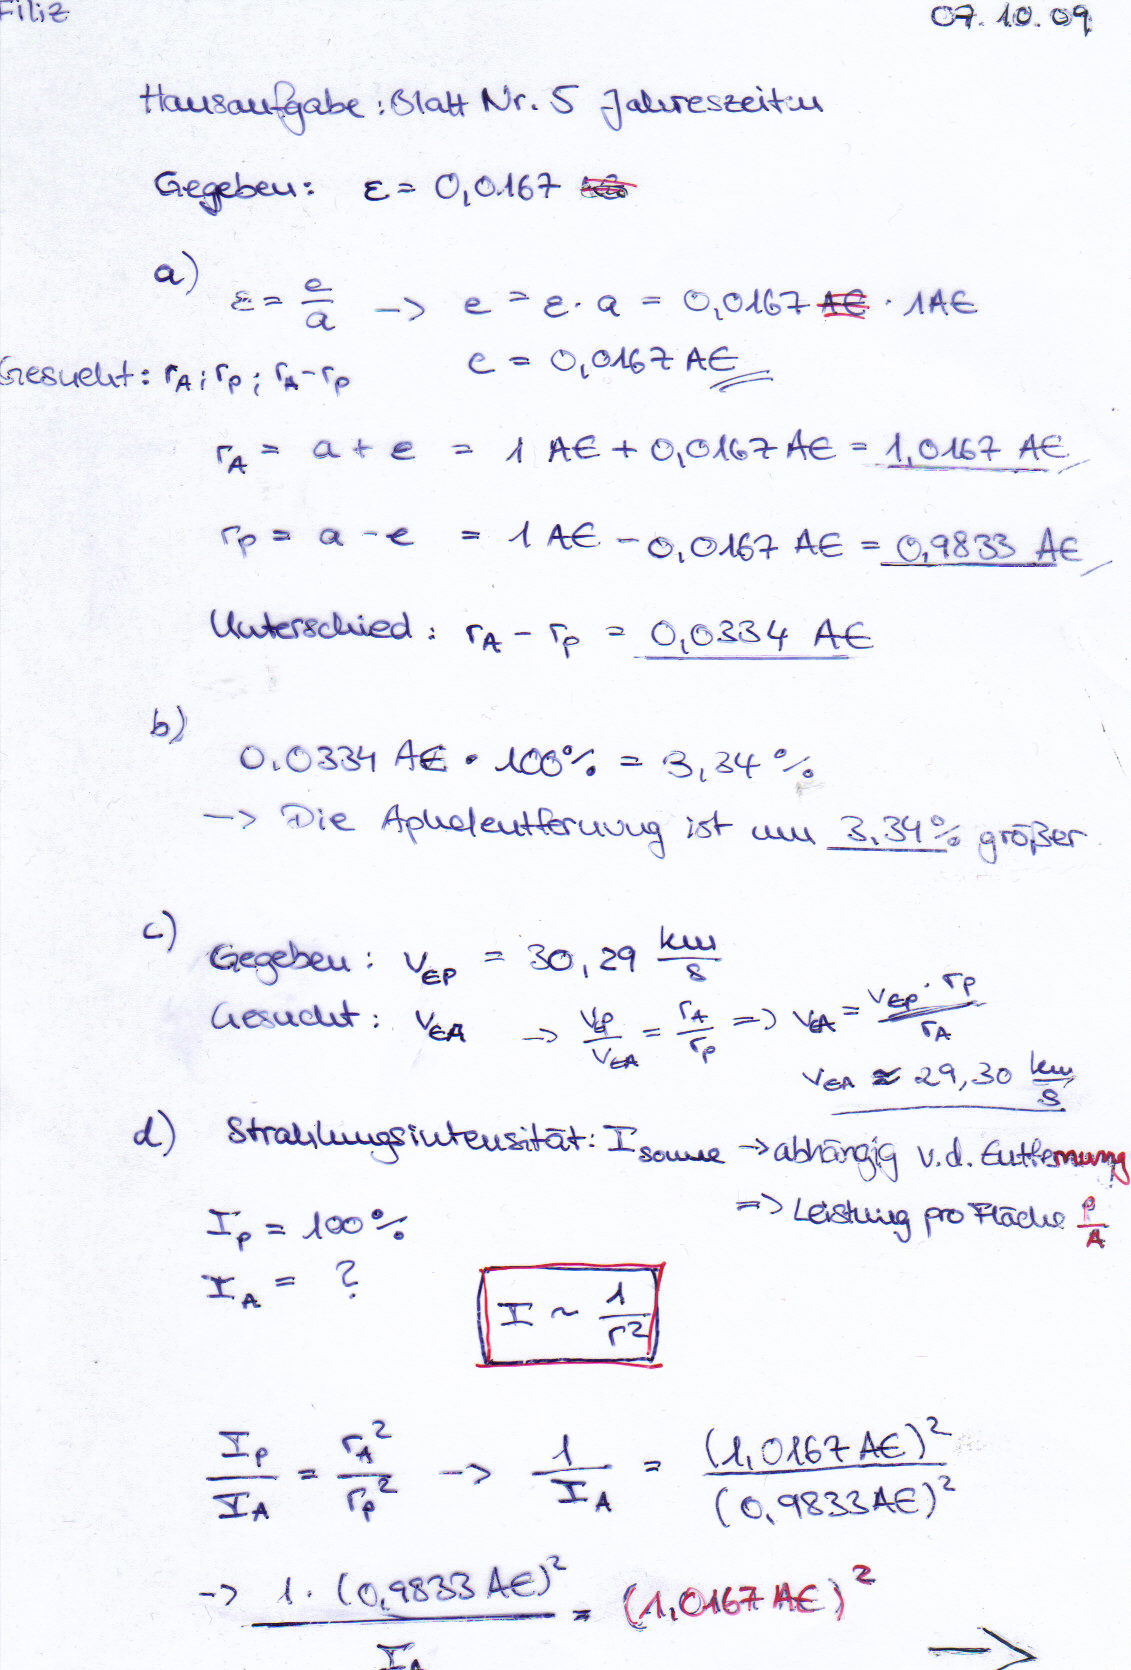 Filiz 07.10.09
Hausaufgabe: Blatt Nr. 5 Jahreszeiten
Gegeben: ε = 0,0167
a) ε = e/a -> e = ε · a = 0,0167 AE · 1AE
Gesucht: rA; rP; rA-rP e = 0,0167 AE
rA = a + e = 1 AE + 0,0167 AE = 1,0167 AE
rP = a - e = 1 AE - 0,0167 AE = 0,9833 AE
Unterschied: rA - rP = 0,0334 AE
b)
0,0334 AE · 100% = 3,34%
-> Die Aphelentfernung ist um 3,34% größer
c)
Gegeben: vEP = 30,29 km/s
Gesucht: vEA -> vEP/vEA = rA/rP => vEA = vEP · rP/rA
vEA ≈ 29,30 km/s
d) Strahlungsintensität: ISonne -> abhängig v.d. Entfernung
=> Leistung pro Fläche P/A
IP = 100%
IA = ?
I ~ 1/r²
IP/IA = rA²/rP² -> 1/IA = (1,0167 AE)²/(0,9833 AE)²
-> 1 · (0,9833 AE)²/IA = (1,0167 AE)²
->